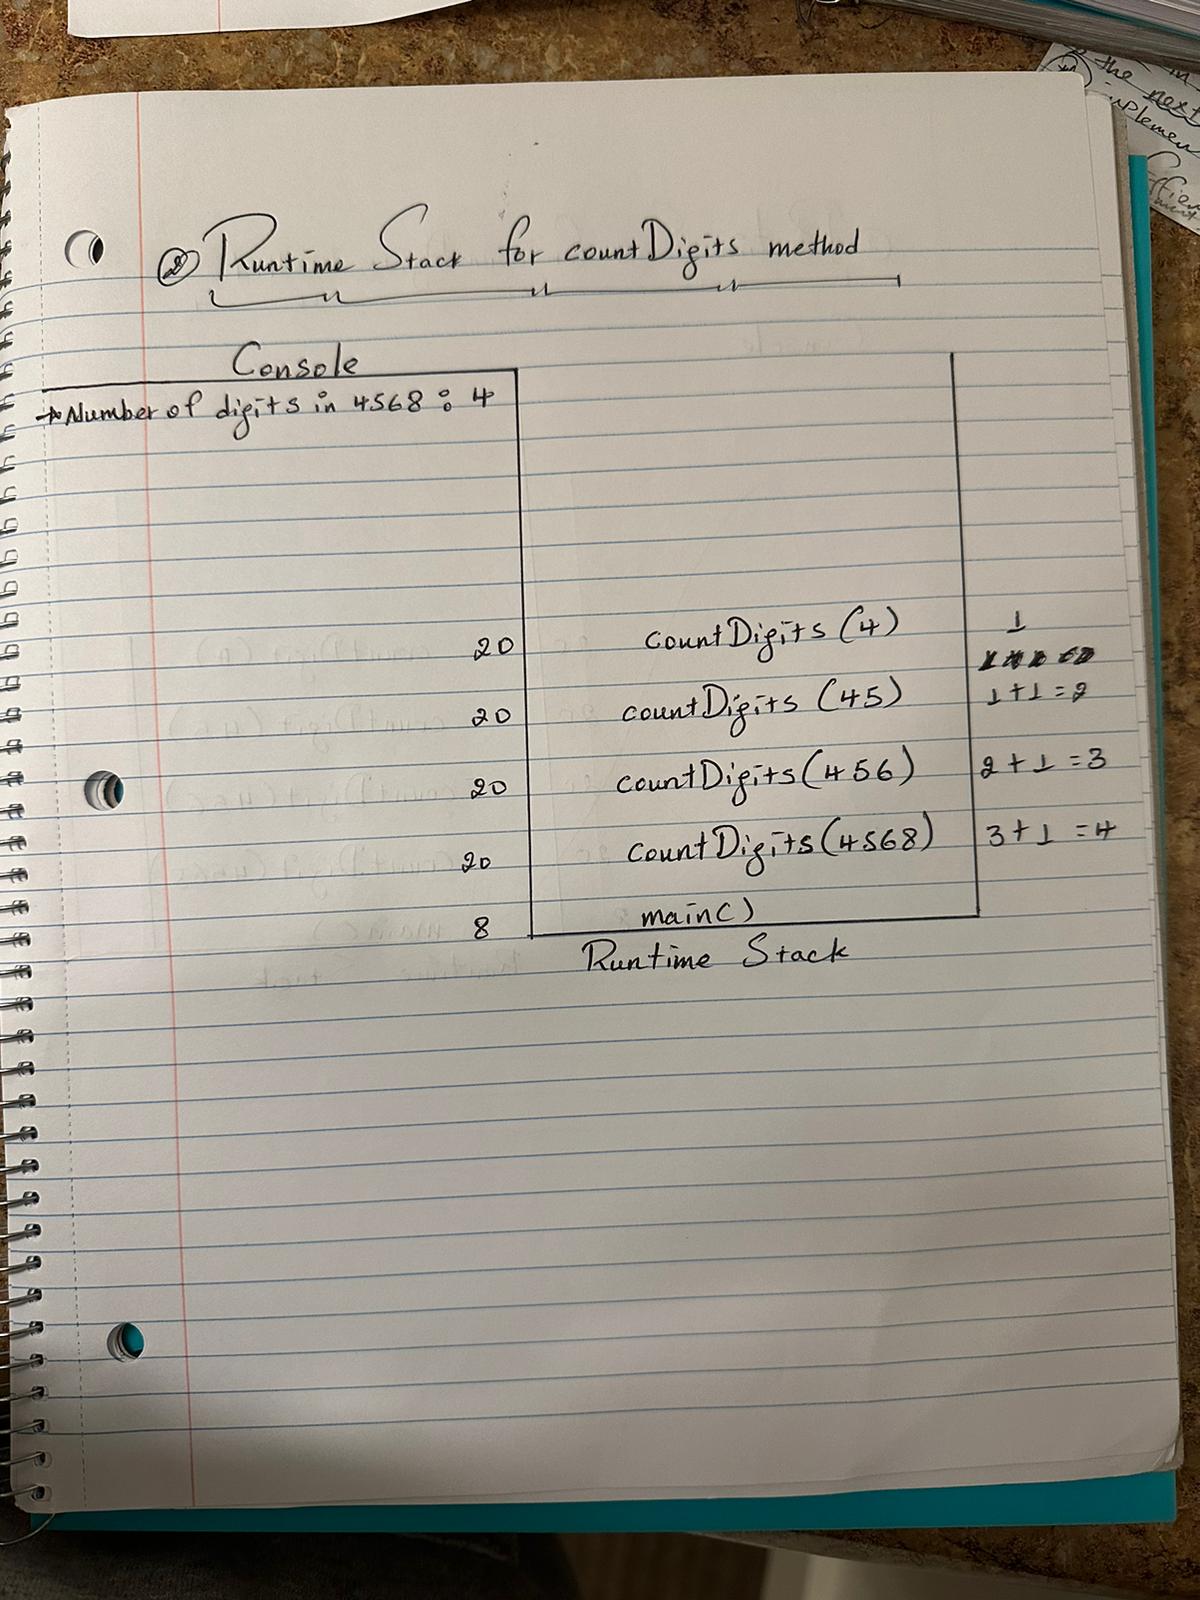 ② Runtime Stack for countDigits method
Console
→ Number of digits in 4568 : 4
20 countDigits (4) 1
20 countDigits (45) 1+1=2
20 countDigits (456) 2+1=3
20 countDigits (4568) 3+1=4
8 main()
Runtime Stack
in
the next
implemen